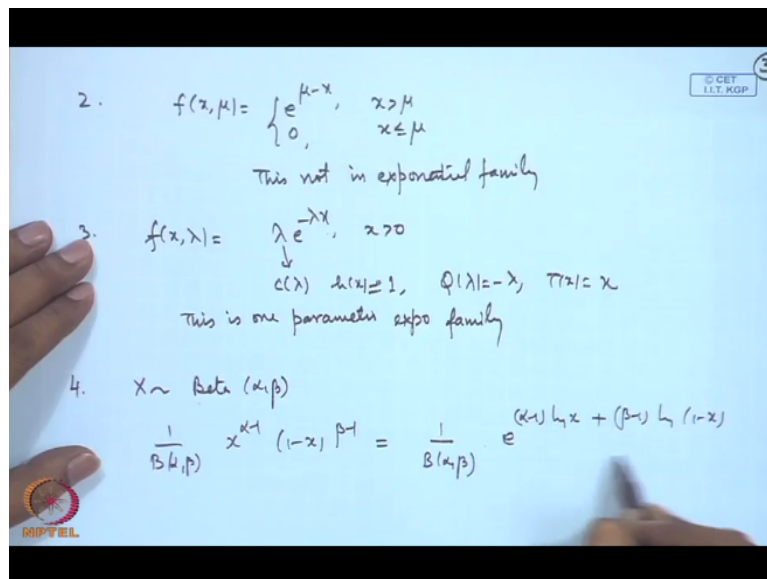 3
© CET
I.I.T. KGP
2. f(x,μ) = { e^{μ-x}, x>μ
0, x≤μ
This not in exponential family
3. f(x,λ) = λ e^{-λx}, x>0
↓
c(λ) h(x)=1, Q(λ)=-λ, T(x)=x
This is one parameter expo family
4. X~ Beta (α,β)
1/B(α,β) x^{α-1} (1-x)^{β-1} = 1/B(α,β) · e^{(α-1) ln x + (β-1) ln (1-x)}
NPTEL